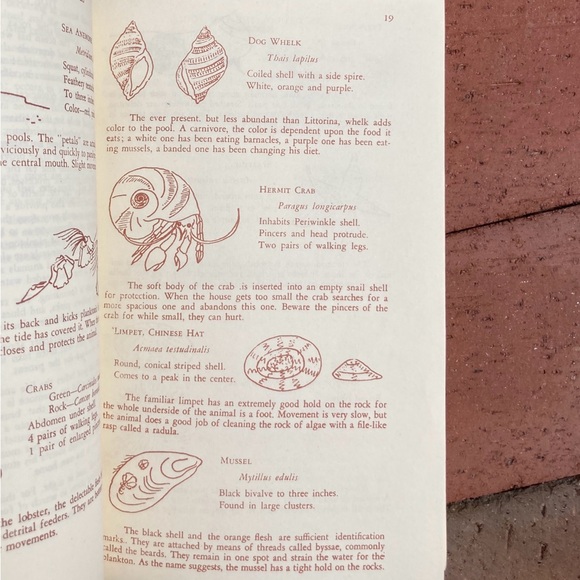 SEA
Squat,
Feathery
To three
Color—
pools. The "petals" are
viciously and quickly to
central mouth. Slight
its back and kicks
the tide has covered it. When
closes and protects the animal.
CRABS
Green—
Rock—
Abdomen under shell.
4 pairs of walking legs,
1 pair of enlarged
the lobster, the delectable
detrital feeders. They
movements.
19
DOG WHELK
Thais lapilus
Coiled shell with a side spire.
White, orange and purple.
The ever present. but less abundant than Littorina, whelk adds
color to the pool. A carnivore, the color is dependent upon the food it
eats; a white one has been eating barnacles, a purple one has been eat-
ing mussels, a banded one has been changing his diet.
HERMIT CRAB
Paragus longicarpus
Inhabits Periwinkle shell.
Pincers and head protrude.
Two pairs of walking legs.
The soft body of the crab .is inserted into an empty snail shell
for protection. When the house gets too small the crab searches for a
more spacious one and abandons this one. Beware the pincers of the
crab for while small, they can hurt.
LIMPET, CHINESE HAT
Acmaea testudinalis
Round, conical striped shell.
Comes to a peak in the center.
The familiar limpet has an extremely good hold on the rock for
the whole underside of the animal is a foot. Movement is very slow, but
the animal does a good job of cleaning the rock of algae with a file-like
rasp called a radula.
MUSSEL
Mytillus edulis
Black bivalve to three inches.
Found in large clusters.
The black shell and the orange flesh are sufficient identification
marks. They are attached by means of threads called byssae, commonly
called the beards. They remain in one spot and strain the water for the
plankton. As the name suggests, the mussel has a tight hold on the rocks.